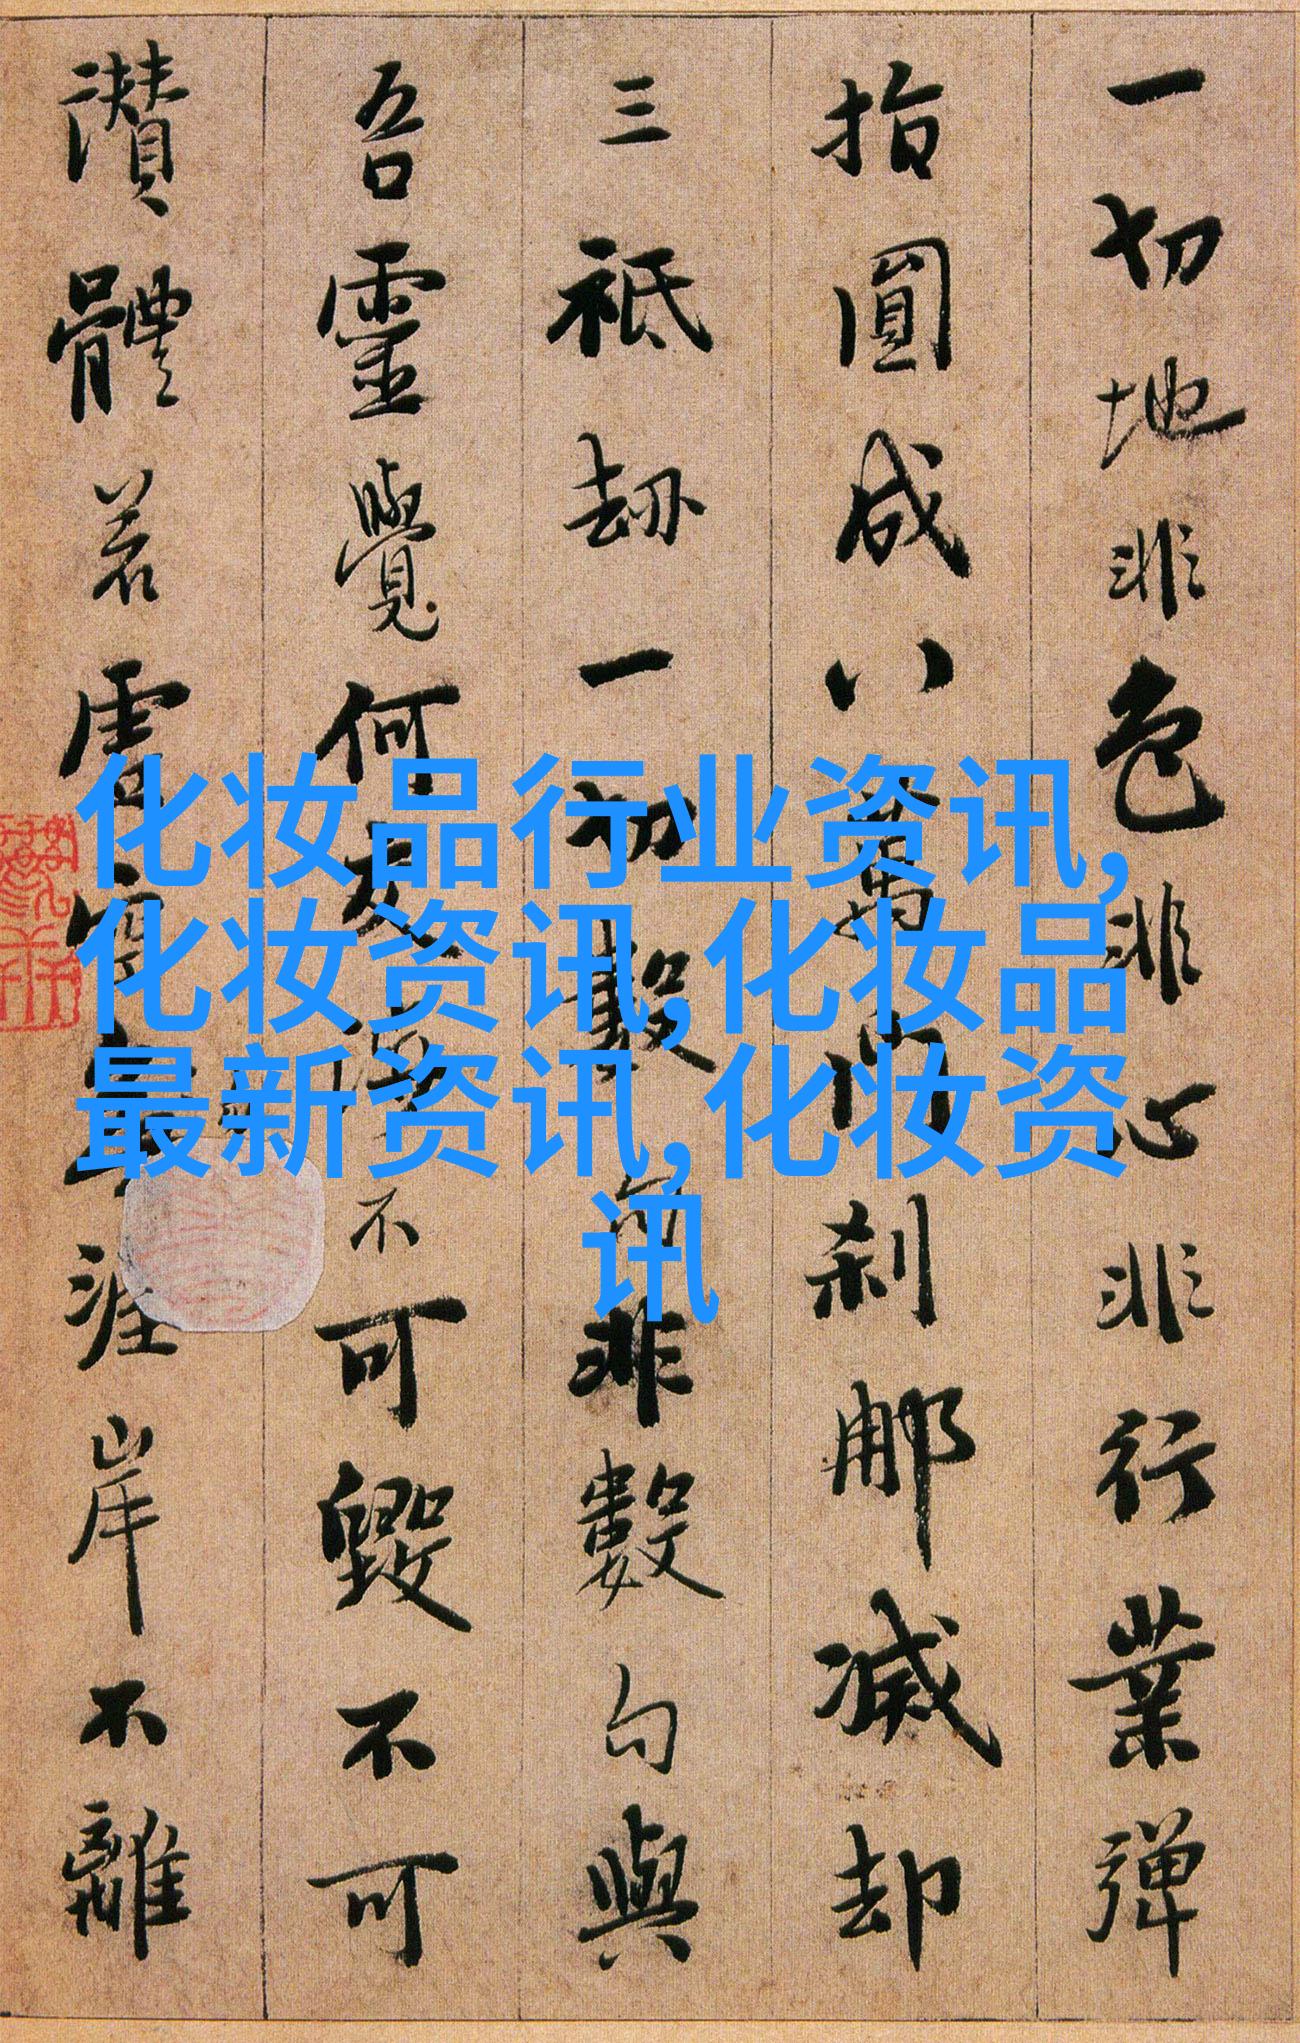 一切地非色非心非行業彈
指圓成八萬門刹那滅却
三祇劫一切數句非數句與
吾靈覺何交涉不可毀不可
讚體若虛空涯岸不離
化妆品行业资讯,
化妆资讯,化妆品
最新资讯,化妆资
讯